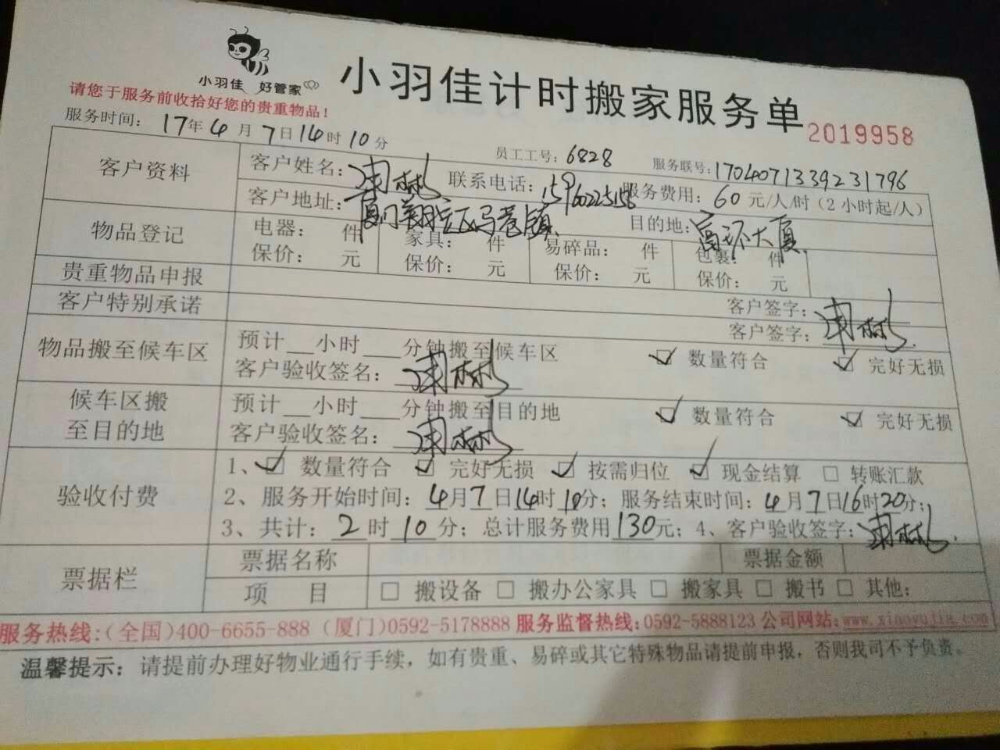 小羽佳 好管家
小羽佳计时搬家服务单
2019958
请您于服务前收拾好您的贵重物品!
服务时间: 17年4月7日14时10分
员工工号: 6828
服务联号: 1704071339231796
客户资料
客户姓名:
联系电话:
服务费用: 60 元/人/时 (2小时起/人)
客户地址: 厦门翔安区马巷镇
目的地: 富环大厦
物品登记
电器: 件 家具: 件 易碎品: 件 包裹: 件
保价: 元 保价: 元 保价: 元 保价: 元
贵重物品申报
客户签字:
客户特别承诺
客户签字:
物品搬至候车区
预计__小时__分钟搬至候车区 ☑ 数量符合 ☑ 完好无损
客户验收签名:
候车区搬
至目的地
预计__小时__分钟搬至目的地 ☑ 数量符合 ☑ 完好无损
客户验收签名:
验收付费
1、☑ 数量符合 ☑ 完好无损 ☑ 按需归位 ☑ 现金结算 □ 转账汇款
2、服务开始时间: 4月7日14时10分; 服务结束时间: 4月7日16时20分;
3、共计: 2时10分; 总计服务费用130元; 4、客户验收签字:
票据栏
票据名称
票据金额
项 目 □ 搬设备 □ 搬办公家具 □ 搬家具 □ 搬书 □ 其他:
服务热线:(全国)400-6655-888 (厦门)0592-5178888 服务监督热线:0592-5888123 公司网站:www.xiaoyujia.com
温馨提示: 请提前办理好物业通行手续, 如有贵重、易碎或其它特殊物品请提前申报, 否则我司不予负责。